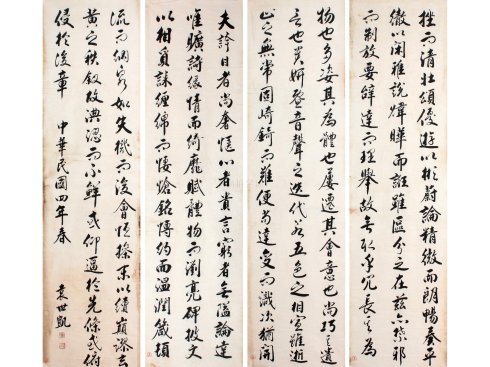 挫而清壯頌優遊以彬蔚論精微而朗暢奏平
徹以閑雅說煒曄而譎雖區分之在茲亦禁邪
而制放要辭達而理舉故無取乎冗長其為
物也多姿其為體也屢遷其會意也尚巧其遣
言也貴妍暨音聲之迭代若五色之相宣雖逝
止之無常固崎錡而難便苟達變而識次猶開
夫誇目者尚奢愜心者貴言窮者無隘論達
唯曠詩緣情而綺靡賦體物而瀏亮碑披文
以相質誄纏綿而悽愴銘博約而溫潤箴頓
流而納泉如失機而後會恆操末以續顛謬玄
黃之秩敘故淟涊而不鮮或仰逼於先條或俯
侵於後章 中華民國四年春
袁世凱